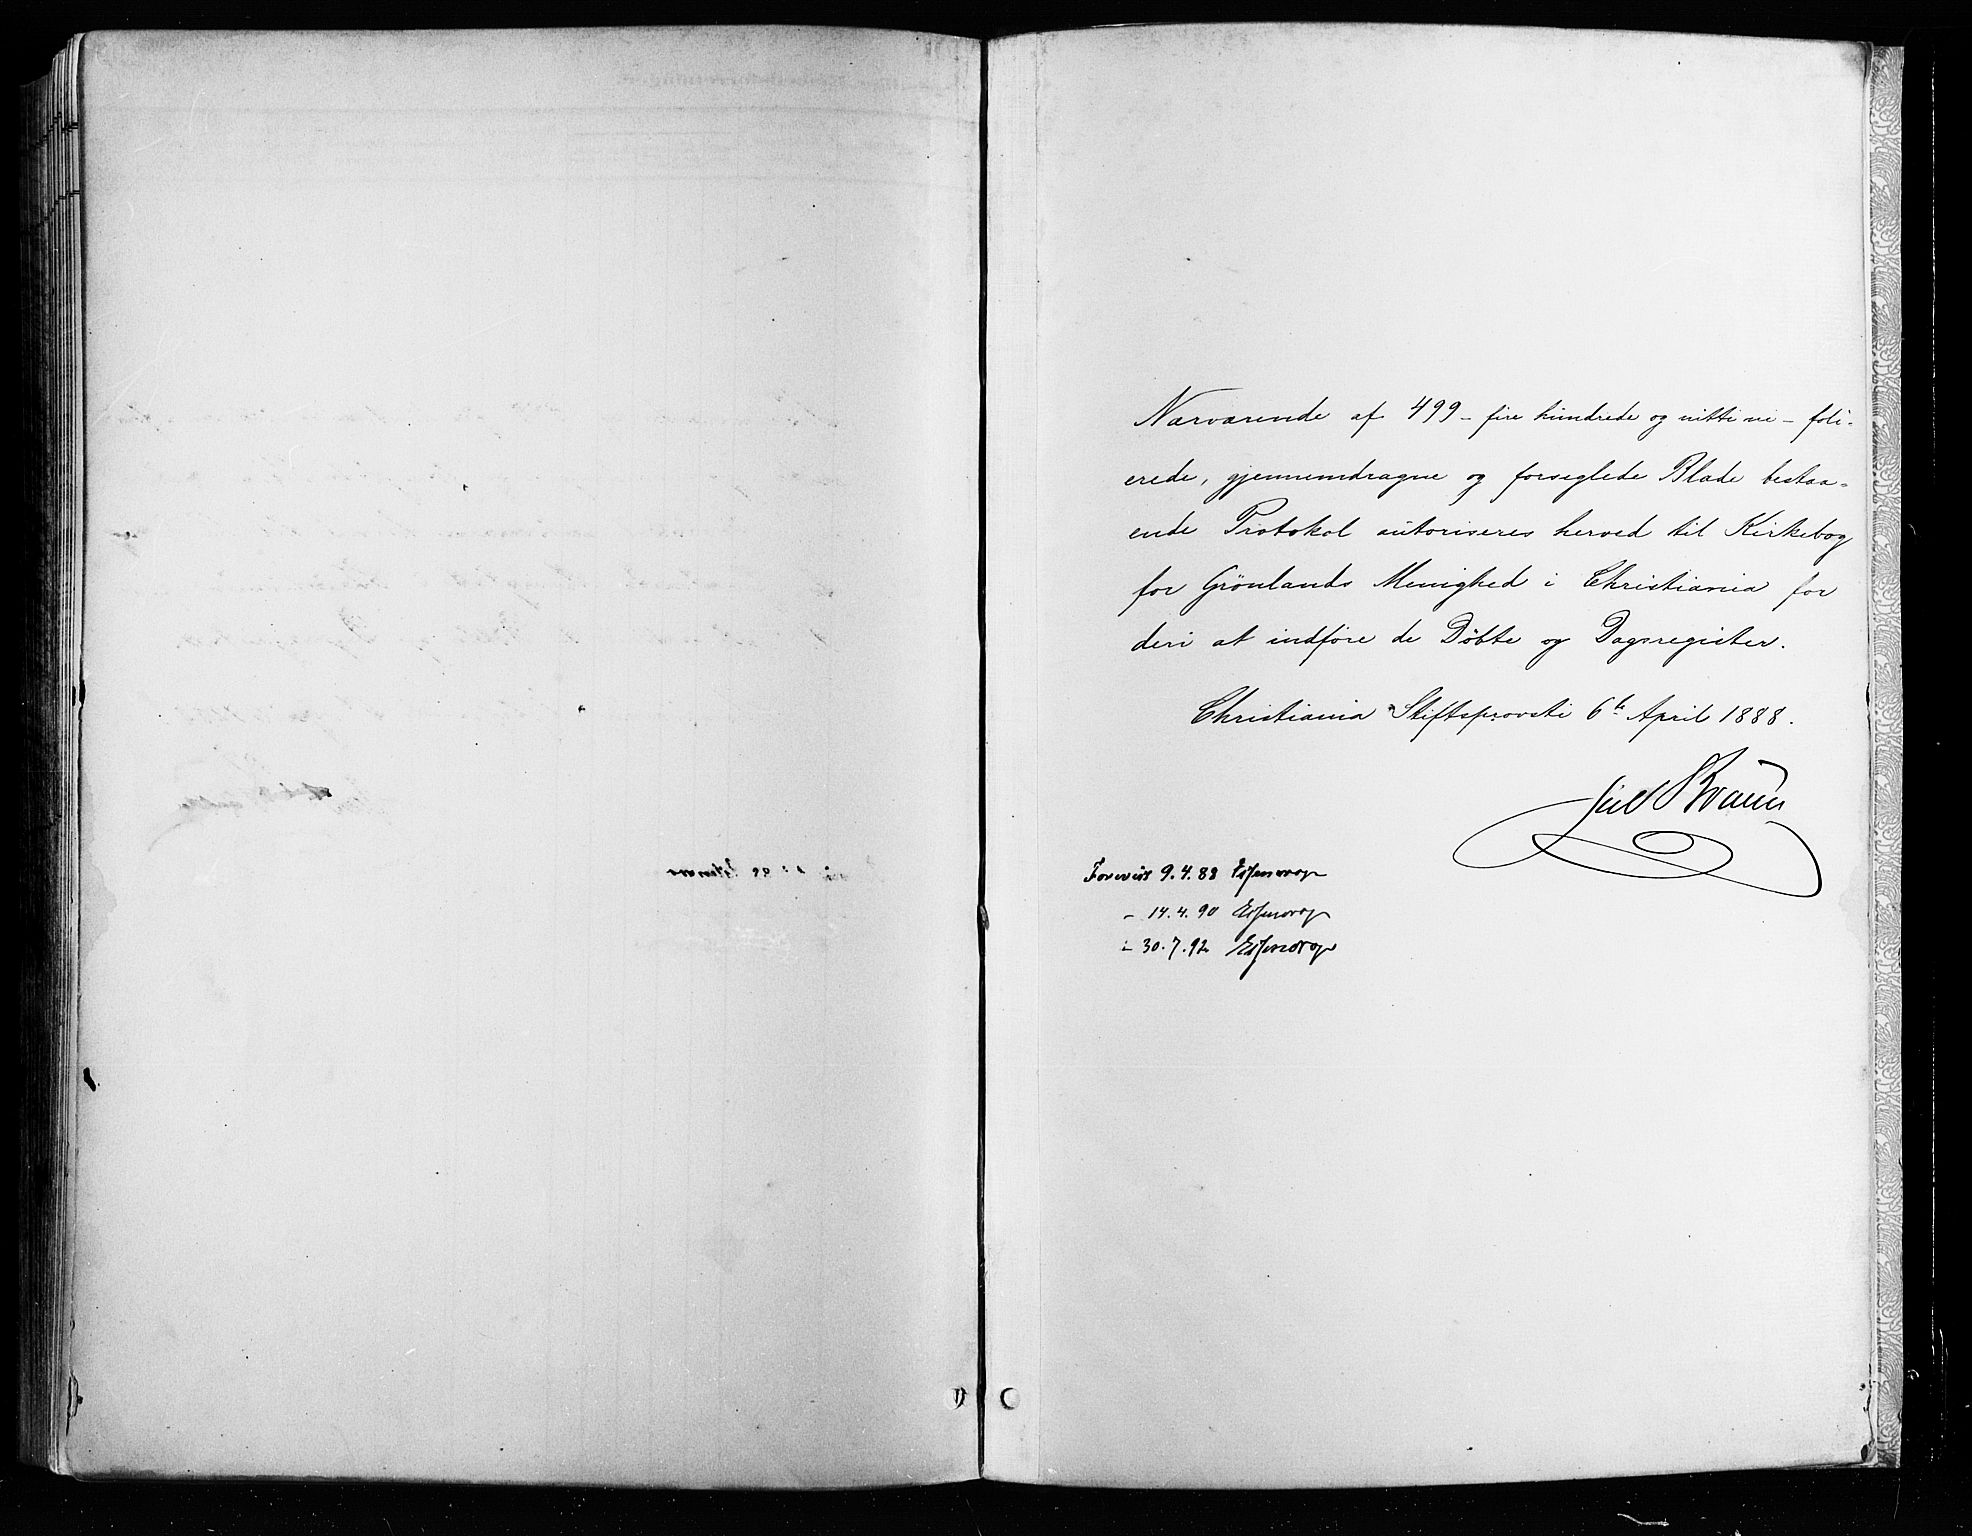 Nærværende af 499 - fire hundrede og nitti ni - foli-
erede, gjennemdragne og forseglede Blade bestaa-
ende Protokol autoriseres herved til Kirkebog
for Grönlands Menighed i Christiania for
deri at indföre de Döbte og Dagsregister.
Christiania Stiftsprovsti 6te April 1888.
Forevist 9.4.88
- 14.4.90
- 30.7.92